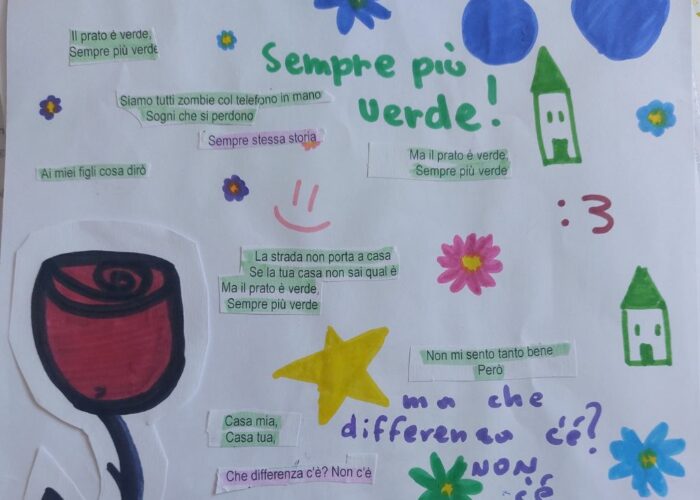 Il prato è verde,
Sempre più verde
Sempre più
verde!
Siamo tutti zombie col telefono in mano
Sogni che si perdono
Sempre stessa storia
Ma il prato è verde,
Sempre più verde
Ai miei figli cosa dirò
:3
La strada non porta a casa
Se la tua casa non sai qual è
Ma il prato è verde,
Sempre più verde
Non mi sento tanto bene
Però
ma che
differenza c'è?
NON
c'è
Casa mia,
Casa tua,
Che differenza c'è? Non c'è